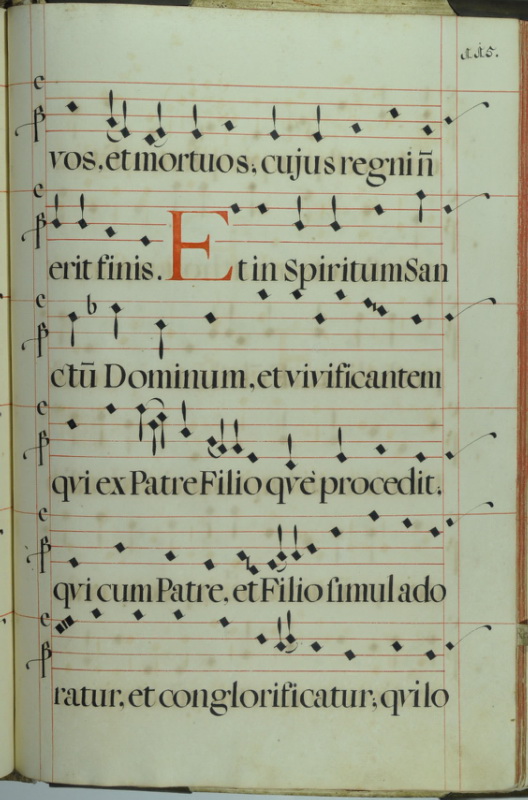 115.
vos, et mortuos; cujus regni n̄
erit finis. Et in SpiritumSan
ctū Dominum, et vivificantem
qvi ex Patre Filio qvè procedit;
qvi cum Patre, et Filio simul ado
ratur, et conglorificatur; qvi lo